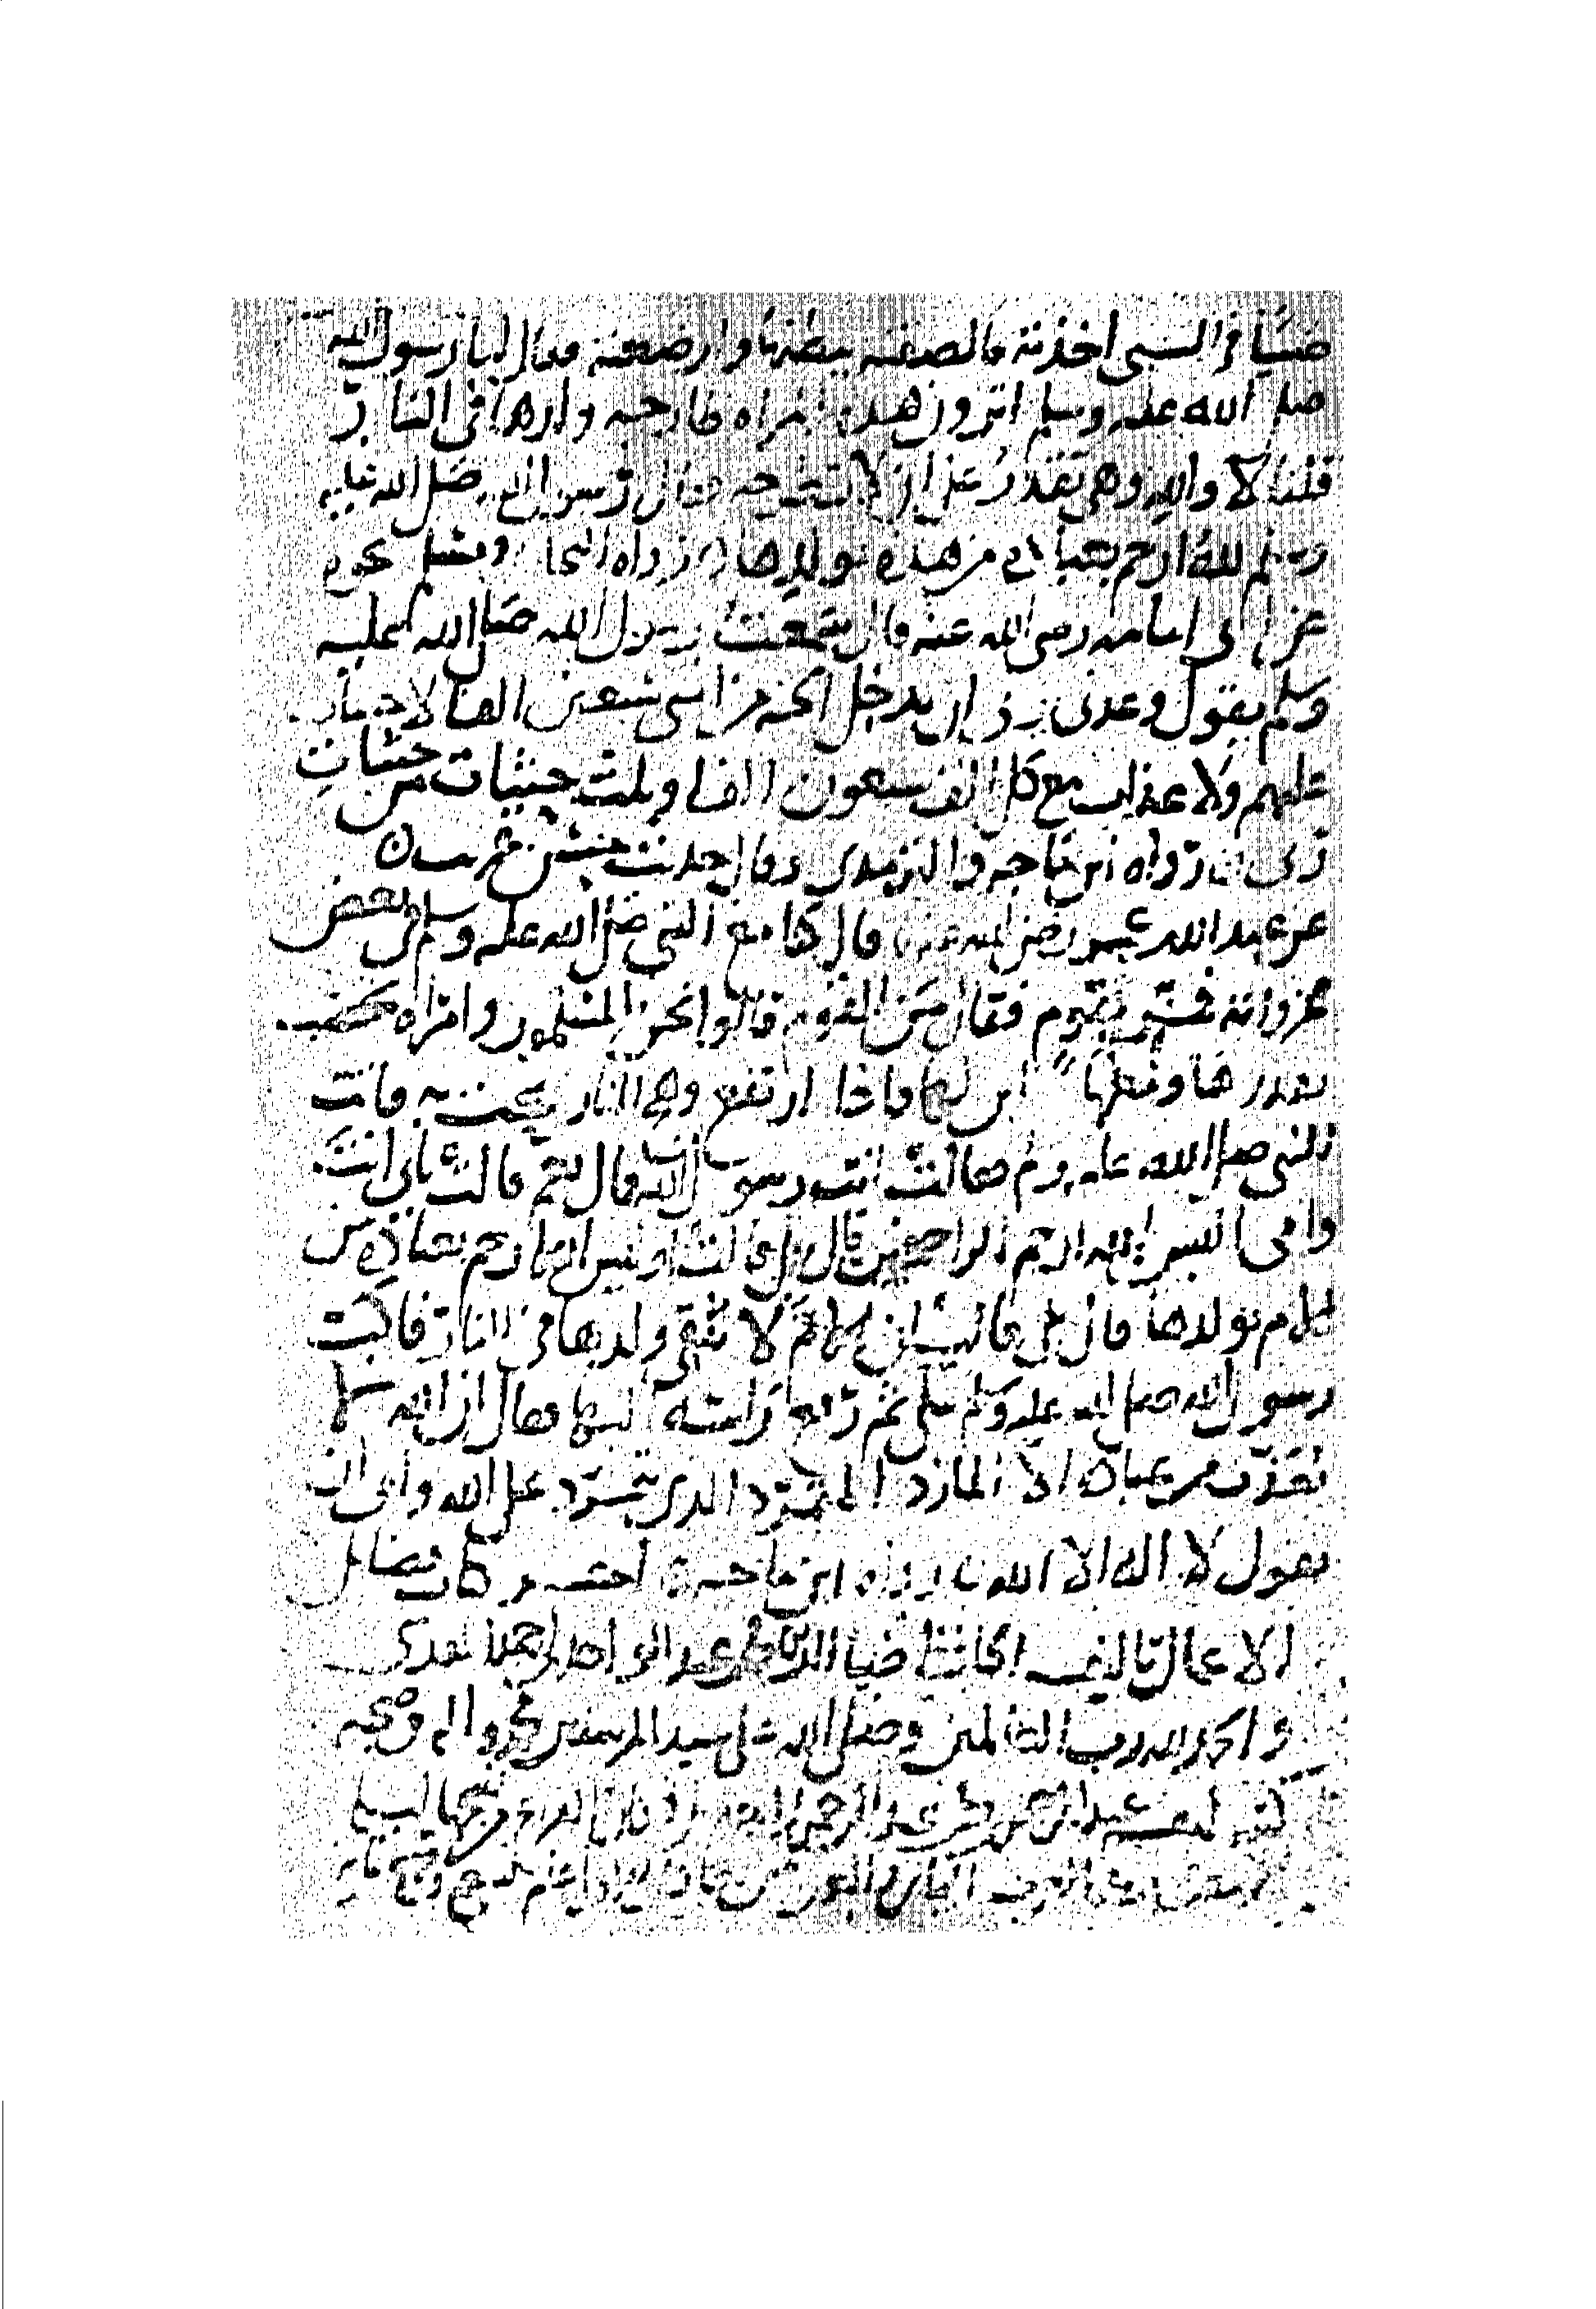 صبيا في السبي أخذته فالصقته ببطنها وارضعته فقال لنا رسول الله
صلى الله عليه وسلم اترون هذه المراه طارحه ولدها في النار
قلنا لا والله وهي تقدر على ان لا تطرحه فقال رسول الله صلى الله عليه
وسلم لله ارحم بعباده من هذه بولدها رواه البخا ومسلم نحوه
عن ابي امامه رضي الله عنه قال سمعت رسول الله صلى الله عليه
وسلم يقول وعدني ربي ان يدخل الجنه من امتي سبعين الفا لا حساب
عليهم ولا عذاب مع كل الف سبعون الفا وثلث حثيات من حثيات
ربي رواه ابن ماجه والترمذي وقال حديث حسن غريب
عن عبد الله بن عمر رضي الله عنه قال كنا مع النبي صلى الله عليه وسلم في بعض
غزواته فمر بقوم فقال من القوم قالوا نحن المسلمون وامراه تحصب
بقدرها ومعها ابن لها فاذا ارتفع وهج النار تنحت به فاتت
النبي صلى الله عليه وسلم فقالت انت رسول الله قال نعم قالت بابي انت
وامي اليس الله ارحم الراحمين قال بلى قالت اوليس الله ارحم بعباده من
الام بولدها قال بلى قالت ان الام لا تلقي ولدها في النار فاكب
رسول الله صلى الله عليه وسلم يبكي ثم رفع راسه اليها فقال ان الله لا
يعذب من عباده الا المارد المتمرد الذي يتمرد على الله وابى ان
يقول لا اله الا الله رواه ابن ماجه اخر كتاب فضائل
الاعمال تاليف الحافظ ضيا الدين محمد بن عبد الواحد بن احمد المقدسي
والحمد لله رب العالمين وصلى الله على سيد المرسلين محمد واله وصحبه